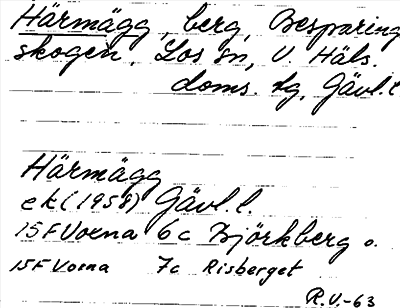 Härmägg, berg, Besparing
skogen, Los sn, V. Häls.
doms. tg, Gävl. l
Härmägg
ek (1958) Gävl. l.
15F Voxna 6c Björkberg o.
15F Voxna 7c Risberget
R.V.-63